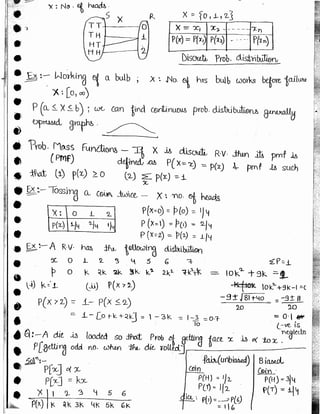 X : No. of heads.
S X R
TT
TH
HT
HH
0
1
2
X = {0, 1, 2}
X = x₁ | x₂ | ---- | xₙ
P(x) = P(x₁) | P(x₂) | ---- | P(xₙ)
Discrete Prob. distribution
Ex:- Working of a bulb ; X : No of hrs bulb works before failure
X : [0, ∞)
P(a ≤ X ≤ b) ; we can find continuous prob. distributions generally
expressed graphs.
Prob. Mass Functions - If X is discrete R.V. then its pmf is
(PMF) defined as P(X=x) = p(x) & pmf is such
that (1) p(x) ≥ 0 (2) Σ p(x) = 1
x
Ex:- Tossing a coin twice - X : no. of heads
X : | 0 1 2
P(x) | 1/4 2/4 1/4
P(X=0) = p(0) = 1/4
P(X=1) = p(1) = 2/4
P(X=2) = p(2) = 1/4
Ex:- A R.V. has the following distribution
x 0 1 2 3 4 5 6 7 ΣP = 1
p 0 k 2k 2k 3k k² 2k² 7k²+k = 10k² + 9k = 1
(i) k = ? (ii) P(X > 2) 10k² + 9k - 1 = 0
P(X > 2) = 1 - P(X ≤ 2)
= 1 - [0 + k + 2k] = 1 - 3k = 1 - 3/10 = 0.7
-9 ± √81+40 / 20 = -9 ± 11 / 20
= 0.1 or
(-ve is neglected
Q:- A die is loaded so that Prob of getting face x is ∝ to x.
P[getting odd no. when the die rolled]
Solⁿ:- P[x] ∝ x
P[x] = kx
X | 1 2 3 4 5 6
P(x) | k 2k 3k 4k 5k 6k
fair (unbiased)
coin
P(H) = 1/2
P(T) = 1/2
dice : P(1) = --- P(6)
= 1/6
Biased
Coin
P(H) = 3/4
P(T) = 1/4